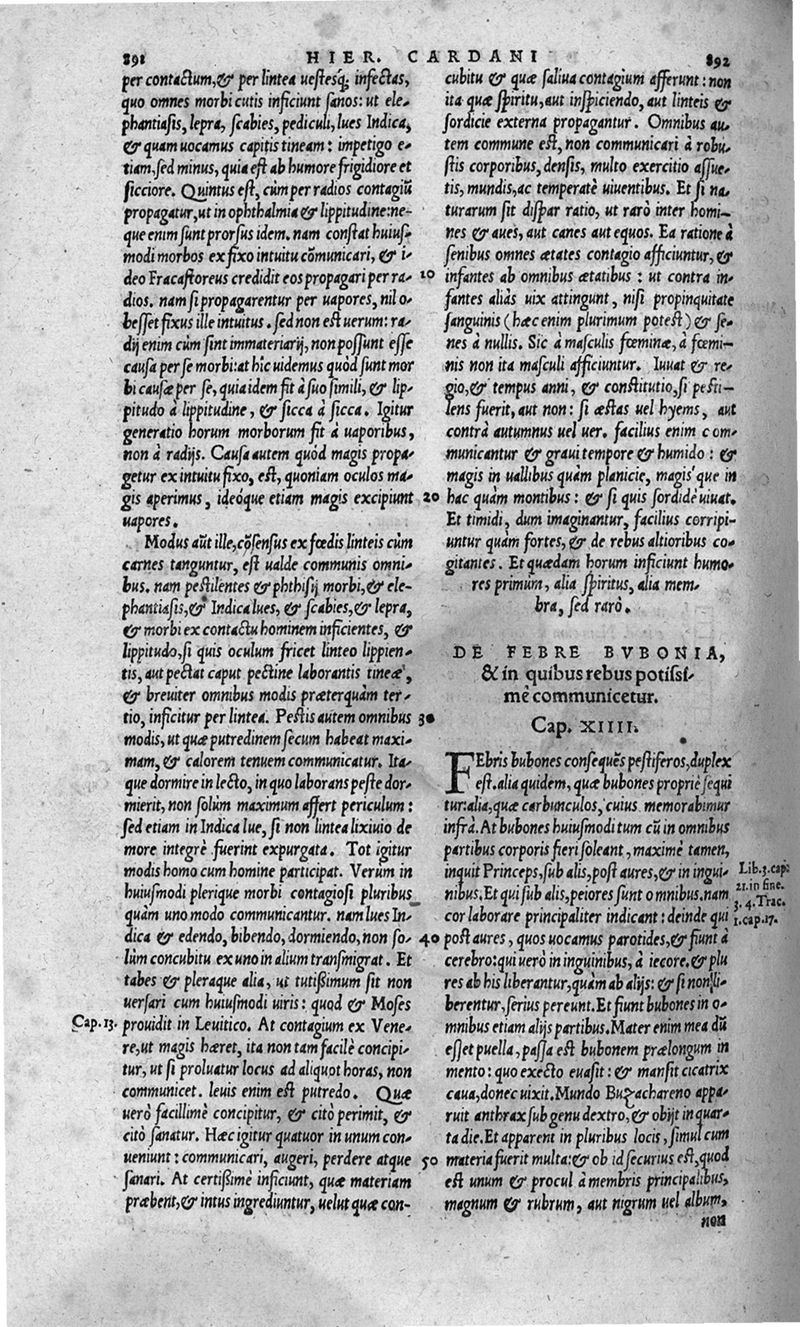 891
HIER. CARDANI
892
per contactum, & per lintea uestesq́; infectas,
quo omnes morbi cutis inficiunt sanos: ut ele-
phantiasis, lepra, scabies, pediculi, lues Indica,
& quam uocamus capitis tineam: impetigo e-
tiam, sed minus, quia est ab humore frigidiore et
sicciore. Quintus est, cùm per radios contagiũ
propagatur, ut in ophthalmia & lippitudine: ne-
que enim sunt prorsus idem. nam constat huius-
modi morbos ex fixo intuitu cõmunicari, & i-
deo Fracastoreus credidit eos propagari per ra-
dios. nam si propagarentur per uapores, nil o-
besset fixus ille intuitus. sed non est uerum: ra-
dij enim cùm sint immateriarij, non possunt esse
causa per se morbi: at hic uidemus quòd sunt mor
bi causæ per se, quia idem fit à suo simili, & lip-
pitudo à lippitudine, & sicca à sicca. Igitur
generatio horum morborum fit à uaporibus,
non à radijs. Causa autem quòd magis propa-
getur ex intuitu fixo, est, quoniam oculos ma-
gis aperimus, ideóque etiam magis excipiunt
uapores.
Modus aũt ille, cõsensus ex fœdis linteis cùm
carnes tanguntur, est ualde communis omni-
bus. nam pestilentes & phthisij morbi, & ele-
phantiasis, & Indica lues, & scabies, & lepra,
& morbi ex contactu hominem inficientes, &
lippitudo, si quis oculum fricet linteo lippien-
tis, aut pectat caput pectine laborantis tineæ,
& breuiter omnibus modis præterquàm ter-
tio, inficitur per lintea. Pestis autem omnibus
modis, ut quæ putredinem secum habeat maxi-
mam, & calorem tenuem communicatur. Ita-
que dormire in lecto, in quo laborans peste dor-
mierit, non solùm maximum affert periculum:
sed etiam in Indica lue, si non lintea lixiuio de
more integrè fuerint expurgata. Tot igitur
modis homo cum homine participat. Verùm in
huiusmodi plerique morbi contagiosi pluribus
quàm uno modo communicantur. nam lues In-
dica & edendo, bibendo, dormiendo, non so-
lùm concubitu ex uno in alium transmigrat. Et
tabes & pleraque alia, ut tutißimum sit non
uersari cum huiusmodi uiris: quod & Moses
Cap. 13.
prouidit in Leuitico. At contagium ex Vene-
re, ut magis hæret, ita non tam facilè concipi-
tur, ut si proluatur locus ad aliquot horas, non
communicet. leuis enim est putredo. Quæ
uerò facillimè concipitur, & citò perimit, &
citò sanatur. Hæc igitur quatuor in unum con-
ueniunt: communicari, augeri, perdere atque
sanari. At certißimè inficiunt, quæ materiam
præbent, & intus ingrediuntur, uelut quæ con-
10
20
30
40
50
cubitu & quæ saliua contagium afferunt: non
ita quæ spiritu, aut inspiciendo, aut linteis &
sordicie externa propagantur. Omnibus au-
tem commune est, non communicari à robu-
stis corporibus, densis, multo exercitio assue-
tis, mundis, ac temperatè uiuentibus. Et si na-
turarum sit dispar ratio, ut rarò inter homi-
nes & aues, aut canes aut equos. Ea ratione à
senibus omnes ætates contagio afficiuntur, &
infantes ab omnibus ætatibus: ut contra in-
fantes aliàs uix attingunt, nisi propinquitate
sanguinis (hæc enim plurimum potest) & se-
nes à nullis. Sic à masculis fœminæ, à fœmi-
nis non ita masculi afficiuntur. Iuuat & re-
gio, & tempus anni, & constitutio, si pesti-
lens fuerit, aut non: si æstas uel hyems, aut
contrà autumnus uel uer. facilius enim com-
municantur & graui tempore & humido: &
magis in uallibus quàm planicie, magis'que in
hac quàm montibus: & si quis sordidè uiuat.
Et timidi, dum imaginantur, facilius corripi-
untur quàm fortes, & de rebus altioribus co-
gitantes. Et quædam horum inficiunt humo-
res primùm, alia spiritus, alia mem-
bra, sed rarò.
DE FEBRE BVBONIA,
& in quibus rebus potissi-
mè communicetur.
Cap. XIIII.
FEbris bubones consequẽs pestiferos, duplex
est. alia quidem, quæ bubones propriè sequi
tur: alia, quæ carbunculos, cuius memorabimur
infrà. At bubones huiusmodi tum cũ in omnibus
partibus corporis fieri soleant, maximè tamen,
inquit Princeps, sub alis, post aures, & in ingui-
nibus. Et qui sub alis, peiores sunt omnibus. nam
cor laborare principaliter indicant: deinde qui
Lib. 3. cap:
21. in fine.
3. 4. Trac.
1. cap. 17.
post aures, quos uocamus parotides, & fiunt à
cerebro: qui uerò in inguinibus, à iecore. & plu
res ab his liberantur, quàm ab alijs: & si non li-
berentur, serius pereunt. Et fiunt bubones in o-
mnibus etiam alijs partibus. Mater enim mea dũ
esset puella, passa est bubonem prælongum in
mento: quo execto euasit: & mansit cicatrix
caua, donec uixit. Mundo appa-
ruit anthrax sub genu dextro, & obijt in quar-
ta die. Et apparent in pluribus locis, simul cum
materia fuerit multa: & ob id securius est, quod
est unum & procul à membris principalibus,
magnum & rubrum, aut nigrum uel album,
non